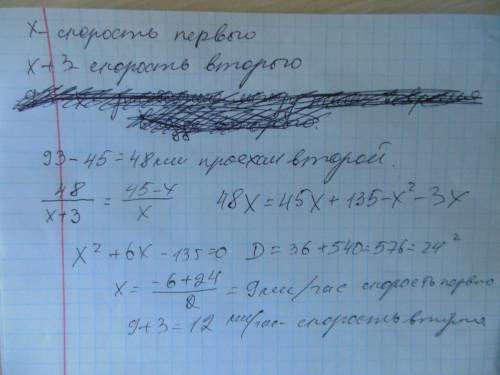 x - скорость первого
x+3 - скорость второго
93-45=48км проехал второй.
48/x+3 = 45-x/x 48x=45x+135-x²-3x
x²+6x-135=0 D=36+540=576=24²
x = -6+24/2 = 9км/час скорость первого
9+3=12 км/час - скорость второго